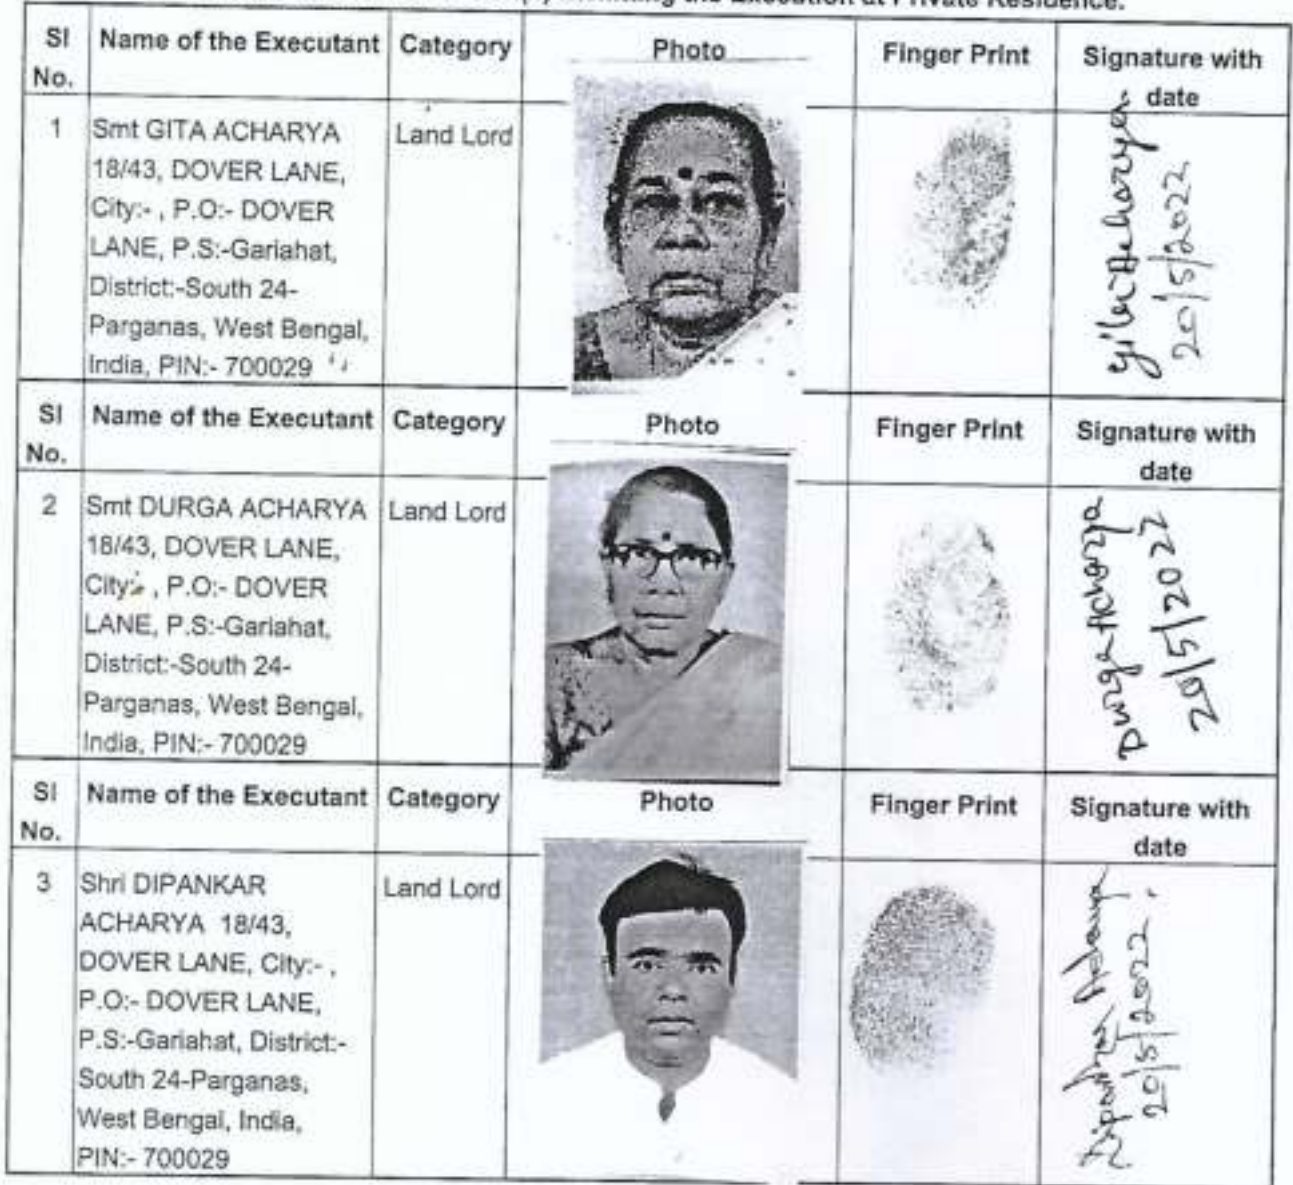 the Execution at Private Residence.
SI No. Name of the Executant Category Photo Finger Print Signature with date
1 Smt GITA ACHARYA Land Lord
18/43, DOVER LANE,
City:- , P.O:- DOVER
LANE, P.S:-Gariahat,
District:-South 24-
Parganas, West Bengal,
India, PIN:- 700029
Gita Acharya
20/5/2022
SI No. Name of the Executant Category Photo Finger Print Signature with date
2 Smt DURGA ACHARYA Land Lord
18/43, DOVER LANE,
City:- , P.O:- DOVER
LANE, P.S:-Gariahat,
District:-South 24-
Parganas, West Bengal,
India, PIN:- 700029
Durga Acharya
20/5/2022
SI No. Name of the Executant Category Photo Finger Print Signature with date
3 Shri DIPANKAR Land Lord
ACHARYA 18/43,
DOVER LANE, City:- ,
P.O:- DOVER LANE,
P.S:-Gariahat, District:-
South 24-Parganas,
West Bengal, India,
PIN:- 700029
Dipankar Acharya
20/5/2022